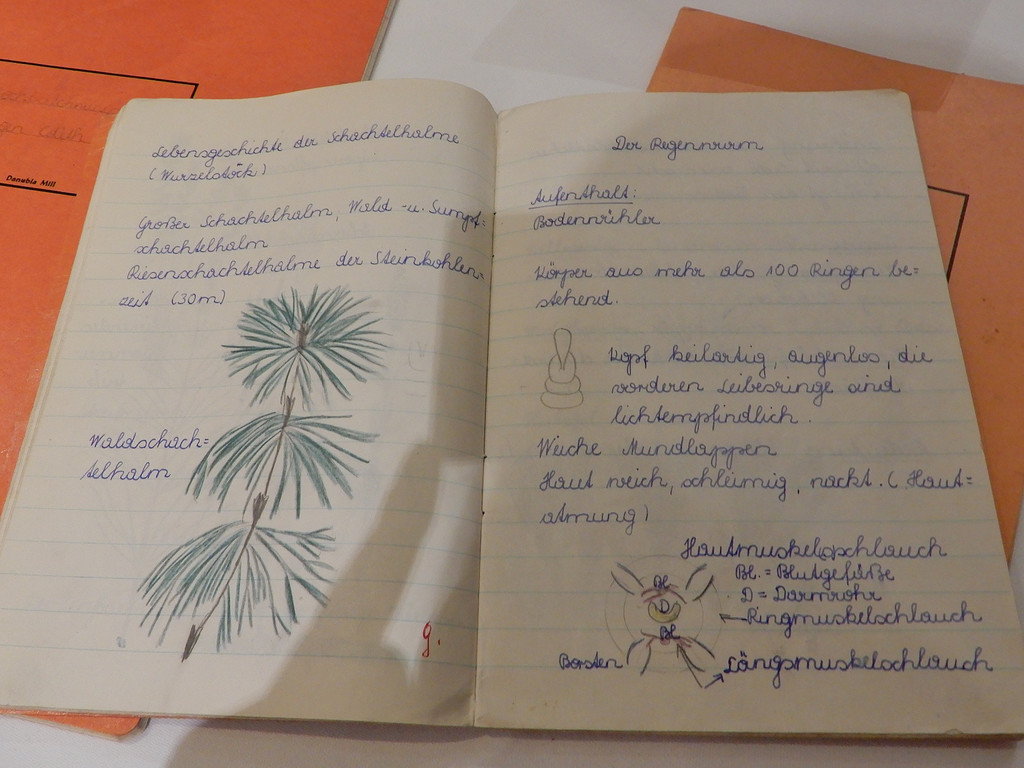 Danubia Mill
Lebensgeschichte der Schachtelhalme
(Wurzelstock)
Großer Schachtelhalm, Wald -u. Sumpf=
schachtelhalm
Riesenschachtelhalme der Steinkohlen=
zeit (30m)
Waldschach=
telhalm
g.
Der Regenwurm
Aufenthalt:
Bodenwühler
Körper aus mehr als 100 Ringen be=
stehend.
Kopf keilartig, augenlos, die
vorderen Leibesringe sind
lichtempfindlich.
Weiche Mundlappen
Haut weich, schleimig, nackt. (Haut=
atmung)
Hautmuskelschlauch
Bl. = Blutgefäße
D = Darmrohr
Ringmuskelschlauch
Bl.
D
Bl.
Borsten
Längsmuskelschlauch